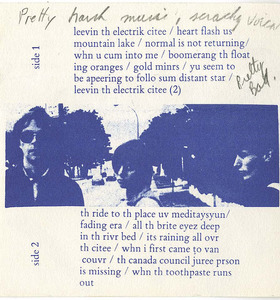 Pretty harsh music, scrachy
side 1
leevin th electrik citee / heart flash us
mountain lake / normal is not returning/
whn u cum into me / boomerang th float
ing oranges / gold minrs / yu seem to
be apeering to follo sum distant star /
leevin th electrik citee (2)
Pretty
Bad.
side 2
th ride to th place uv meditaysyun/
fading era / all th brite eyez deep
in th rivr bed / its raining all ovr
th citee / whn i first came to van
couvr / th canada council juree prson
is missing / whn th toothpaste runs
out